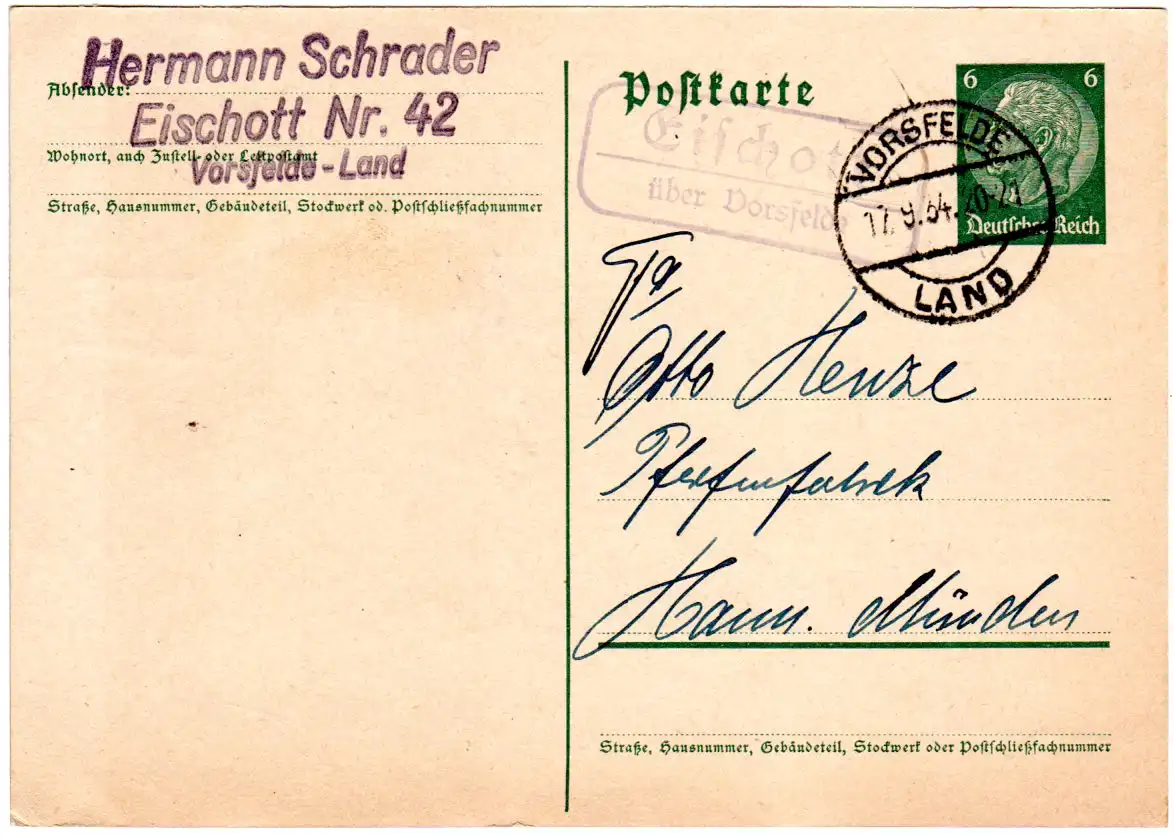 Hermann Schrader
Absender:
Eischott Nr. 42
Wohnort, auch Zustell- oder Leitpostamt
Vorsfelde-Land
Straße, Hausnummer, Gebäudeteil, Stockwerk od. Postschließfachnummer
Postkarte
Eischott
über Vorsfelde
6 6
Deutsches Reich
VORSFELDE
17.9.34.20-21
LAND
Fa
Otto Henze
Pfeifenfabrik
Hann. Münden
Straße, Hausnummer, Gebäudeteil, Stockwerk oder Postschließfachnummer